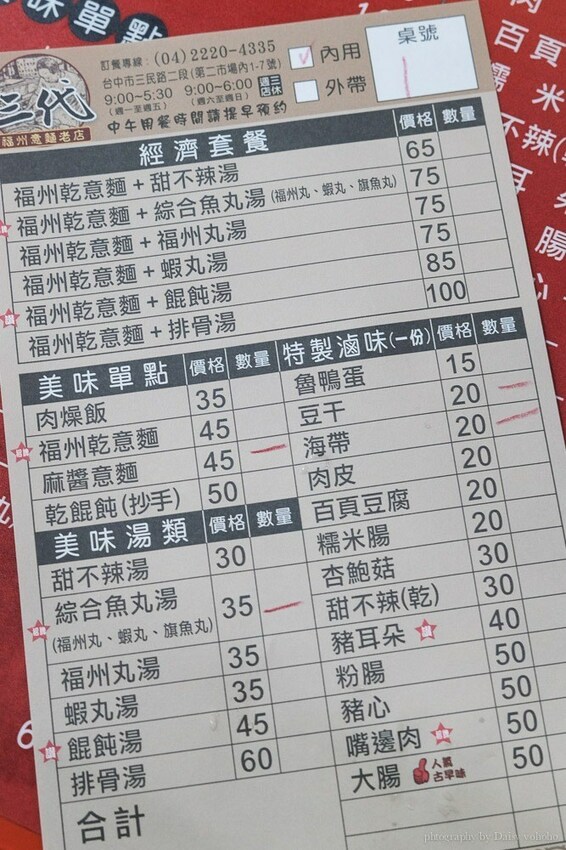 訂餐專線：(04)2220-4335
台中市三民路二段(第二市場內1-7號)
9:00~5:30 9:00~6:00 週三店休
(週一至週五) (週六至週日)
中午用餐時間請提早預約
內用
外帶
桌號
二代
福州意麵老店
經濟套餐 價格 數量
福州乾意麵+甜不辣湯 65
福州乾意麵+綜合魚丸湯(福州丸、蝦丸、旗魚丸) 75
福州乾意麵+福州丸湯 75
福州乾意麵+蝦丸湯 75
福州乾意麵+餛飩湯 85
福州乾意麵+排骨湯 100
美味單點 價格 數量
肉燥飯 35
福州乾意麵 45
麻醬意麵 45
乾餛飩(抄手) 50
美味湯類 價格 數量
甜不辣湯 30
綜合魚丸湯 35
(福州丸、蝦丸、旗魚丸)
福州丸湯 35
蝦丸湯 35
餛飩湯 45
排骨湯 60
合計
特製滷味(一份) 價格 數量
魯鴨蛋 15
豆干 20
海帶 20
肉皮 20
百頁豆腐 20
糯米腸 20
杏鮑菇 30
甜不辣(乾) 30
豬耳朵 40
粉腸 50
豬心 50
嘴邊肉 50
大腸 人氣古早味 50
單點
百頁
米
不辣(
腸
心
photography by Daisy yohoho